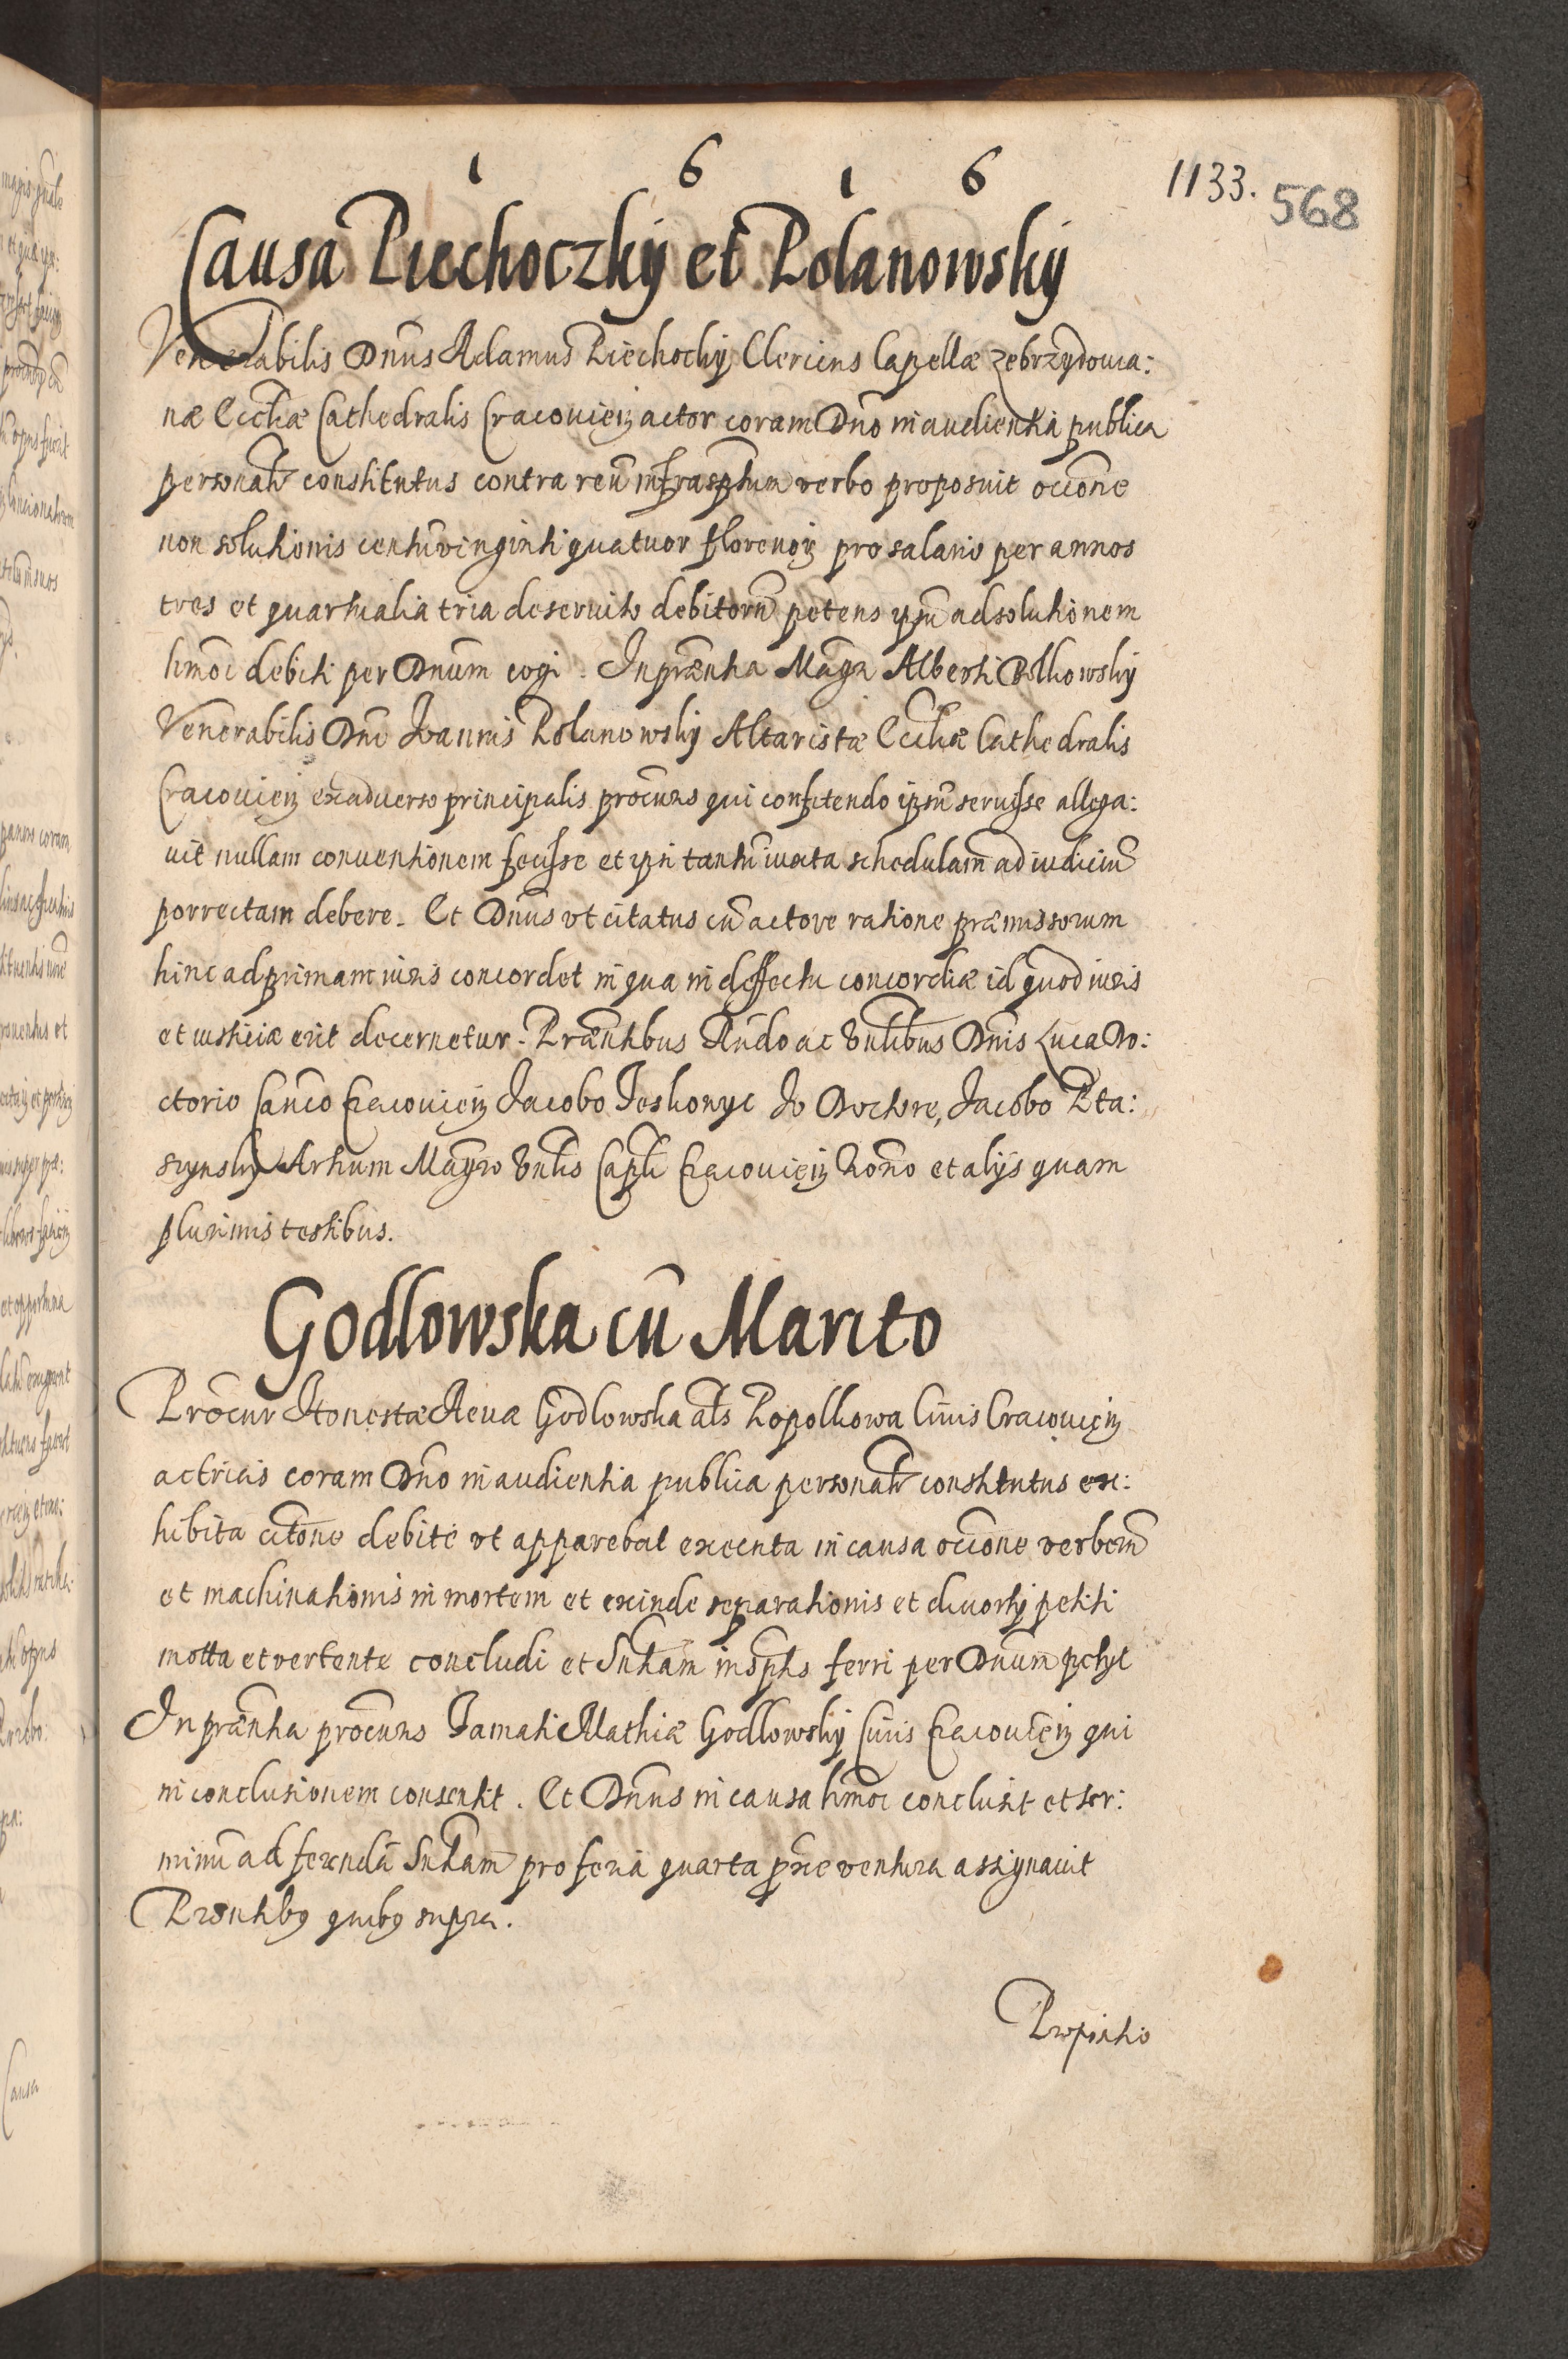 1 6 1 6
1133. 568
Causa Piechoczky et Polanowsky
Venerabilis Dnus Adamus Piechocky Clericus Capellæ Zebrzydowia:
næ Eccliæ Cathedralis Cracovien actor coram Dno in audientia publica
personatr constitutus contra reu infrasptum verbo proposuit occone
non solutionis centu vinginti quatuor florenor pro salario per annos
tres et quartualia tria deservito debitoru petens ipsu ad solutionem
hmoi debiti per Dnum cogi. In præntia Magri Alberti Bolkowsky
Venerabilis Dni Joannis Polanowsky Altaristæ Eccliæ Cathedralis
Cracovien ex adverso principalis procuris qui confitendo ipsu servisse allega:
vit nullam conventionem fecisse et ipsi tantu iuxta schedulam ad iudiciu
porrectam debere. Et Dnus vt citatus cu actore ratione præmissorum
hinc ad primam iuris concordet in qua in deffectu concordiæ id quod iuris
et iusticiæ erit decernetur. Præntibus Rndo ac Vnlibus Dnis Luca Do:
ctorio Canco Cracovien Jacobo Jeskonyc Io Doctore, Jacobo Pta:
szynsky Artium Magro Vnlis Capli Cracovien Nono et alijs quam
plurimis testibus.
Godlowska cu Marito
Procur Honestæ Revæ Godlowska als Popolkowa Civis Cracovien
actricis coram Dno in audientia publica personatr constitutus ex:
hibita citone debite vt apparebat executa in causa occone verberu
et machinationis in mortem et exinde separationis et divortij petiti
motta et vertente concludi et Sntiam in sptis ferri per Dnum petyt
In præntia procuris Famati Mathiæ Godlowsky Civis Cracovien qui
in conclusionem consentit. Et Dnus in causa hmoi conclusit et ter:
minu ad ferenda Sntiam pro feria quarta pxe ventura assignavit
Præntibg quibg supra.